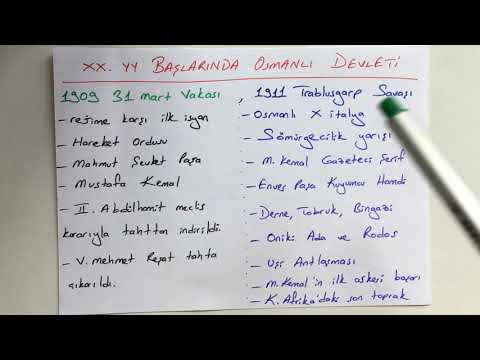 XX. YY BAŞLARINDA OSMANLI DEVLETİ
1909 31 mart Vakası
- rejime karşı ilk isyan
- Hareket Ordusu
- Mahmut Şevket Paşa
- Mustafa Kemal
- II. Abdülhamit meclis
kararıyla tahttan indirildi.
- V. Mehmet Reşat tahta
çıkarıldı.
, 1911 Trablusgarp Savaşı
- Osmanlı X İtalya
- Sömürgecilik yarışı
- M. Kemal Gazeteci Şerif
- Enver Paşa Kuyumcu Hamdi
- Derne, Tobruk, Bingazi
- Oniki Ada ve Rodos
- Uşi Antlaşması
- M. Kemal'in ilk askeri başarı
- K. Afrika'daki son toprak